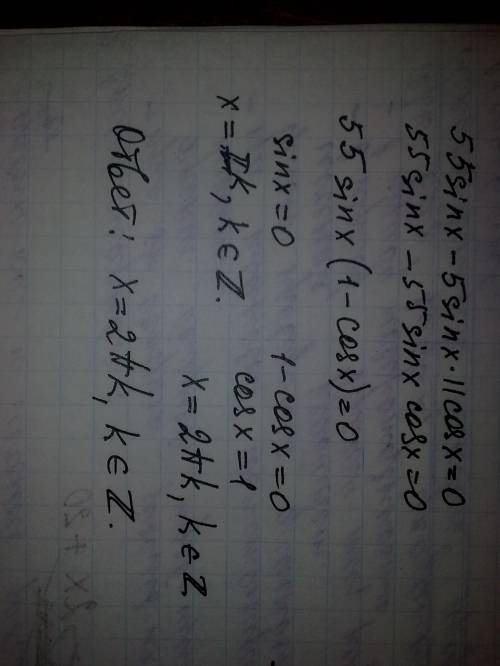 55sinx - 5sinx·11cosx=0
55sinx - 55sinx cosx=0
55 sinx (1-cosx)=0
sinx=0 1-cosx=0
x=πk, k∈Z. cosx=1
x=2πk, k∈Z
Ответ: x=2πk, k∈Z.